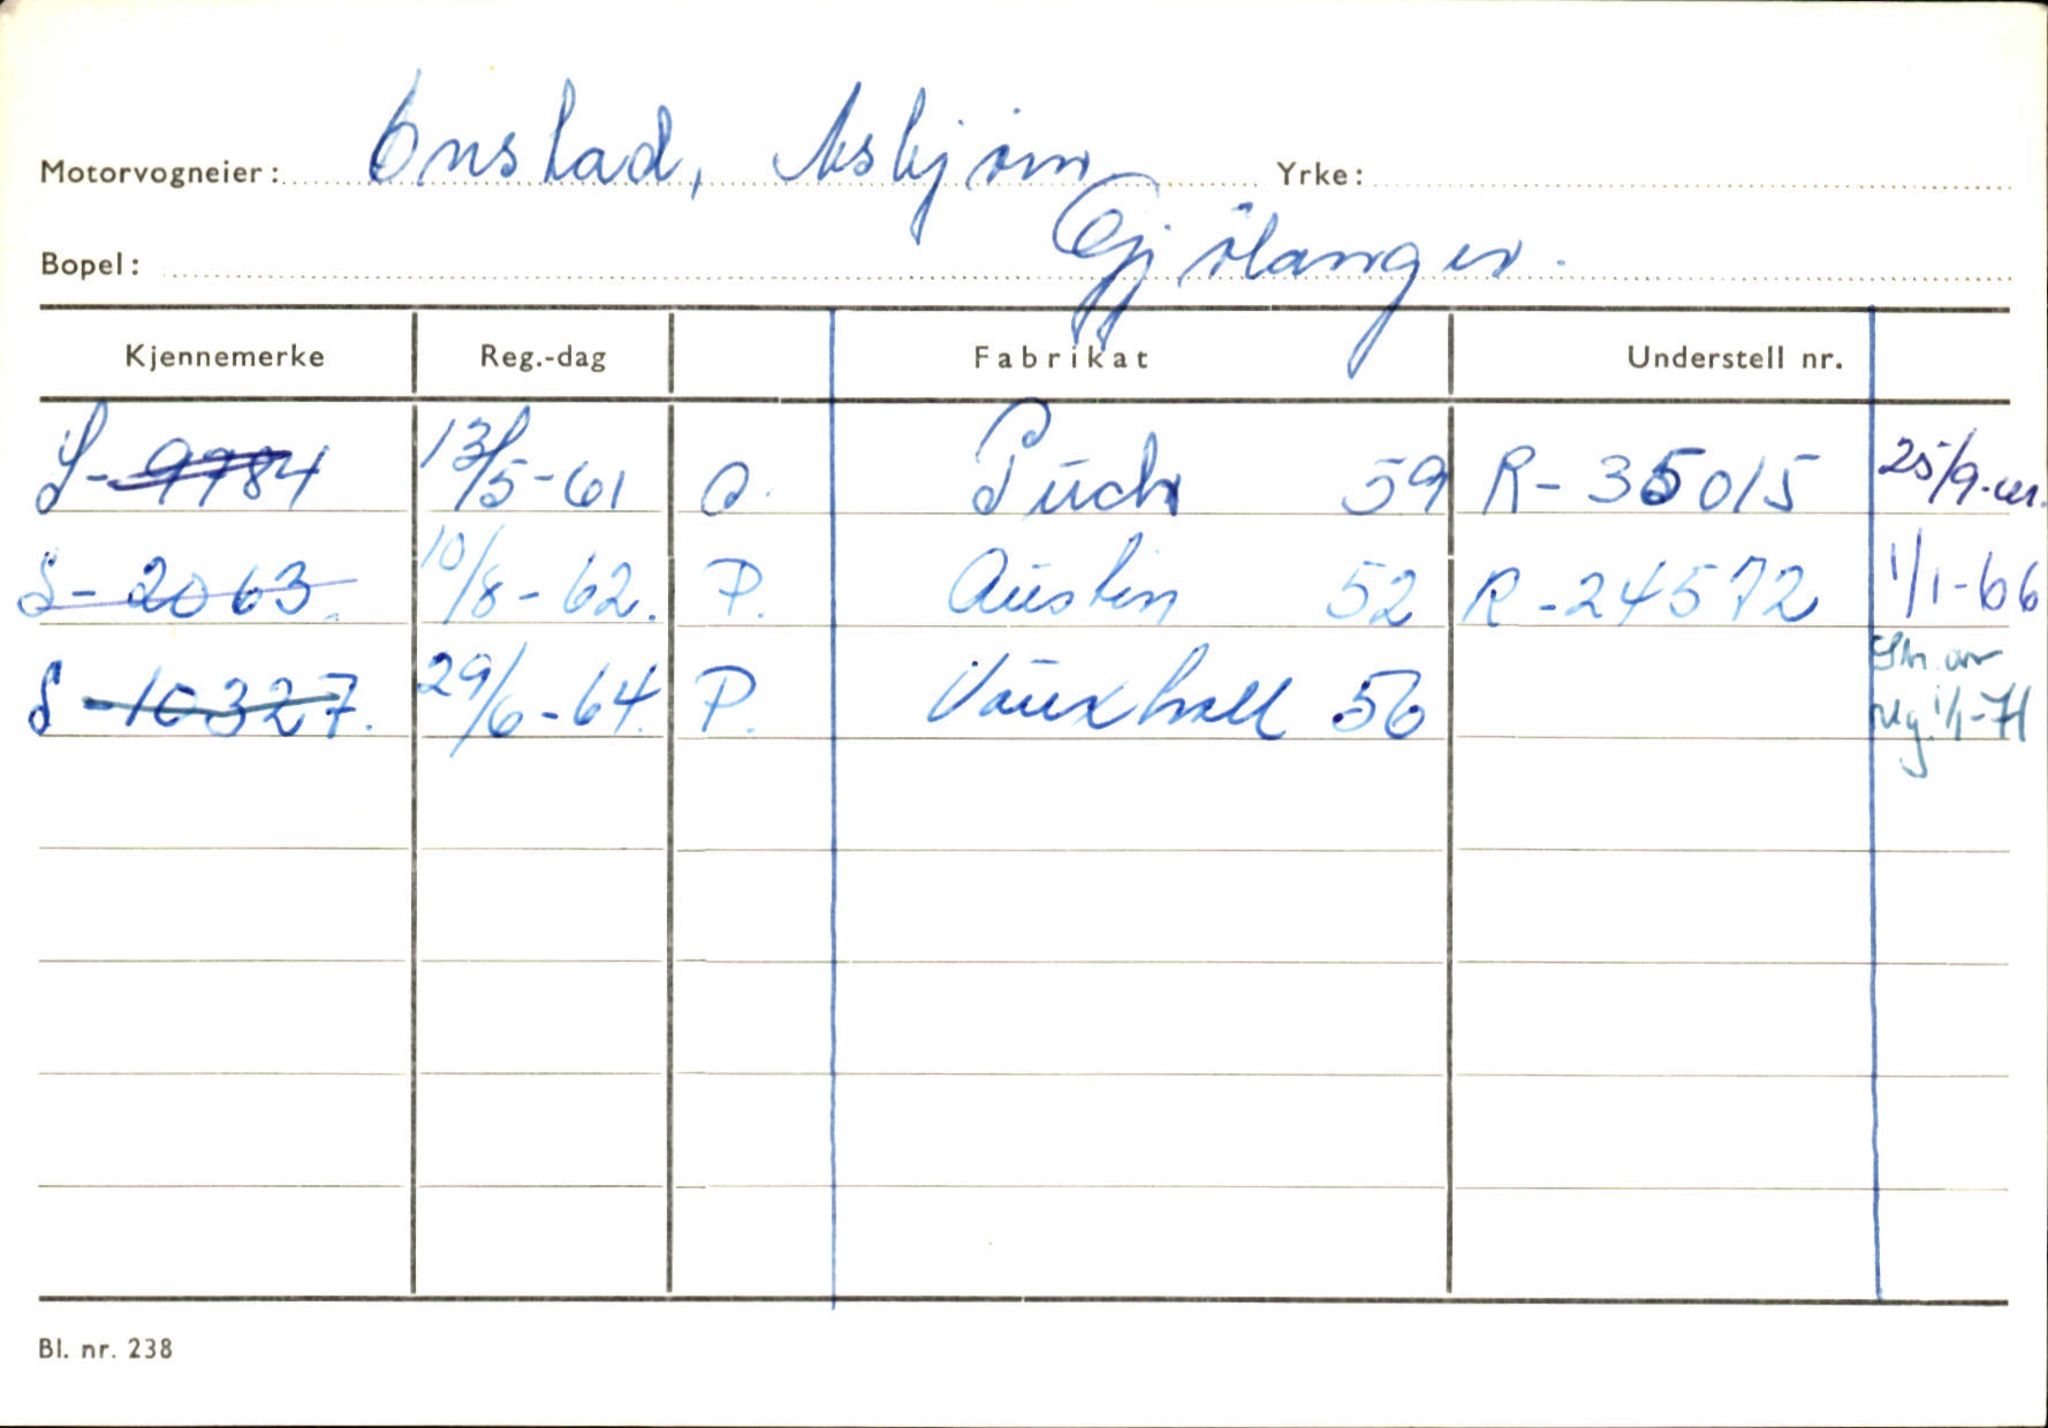 Motorvogneier: Onstad, Asbjørn Yrke:
Bopel: Gjölanger.
Kjennemerke Reg.-dag Fabrikat Understell nr.
S-9984 13/5-61 Puch 59 R-35015 25/9-
S-2063. 10/8-62. P. Austin 52 R-24572 1/1-66
S-10327. 29/6-64. P. Vauxhall 56 Str. av
reg. 1/1-71
Bl. nr. 238